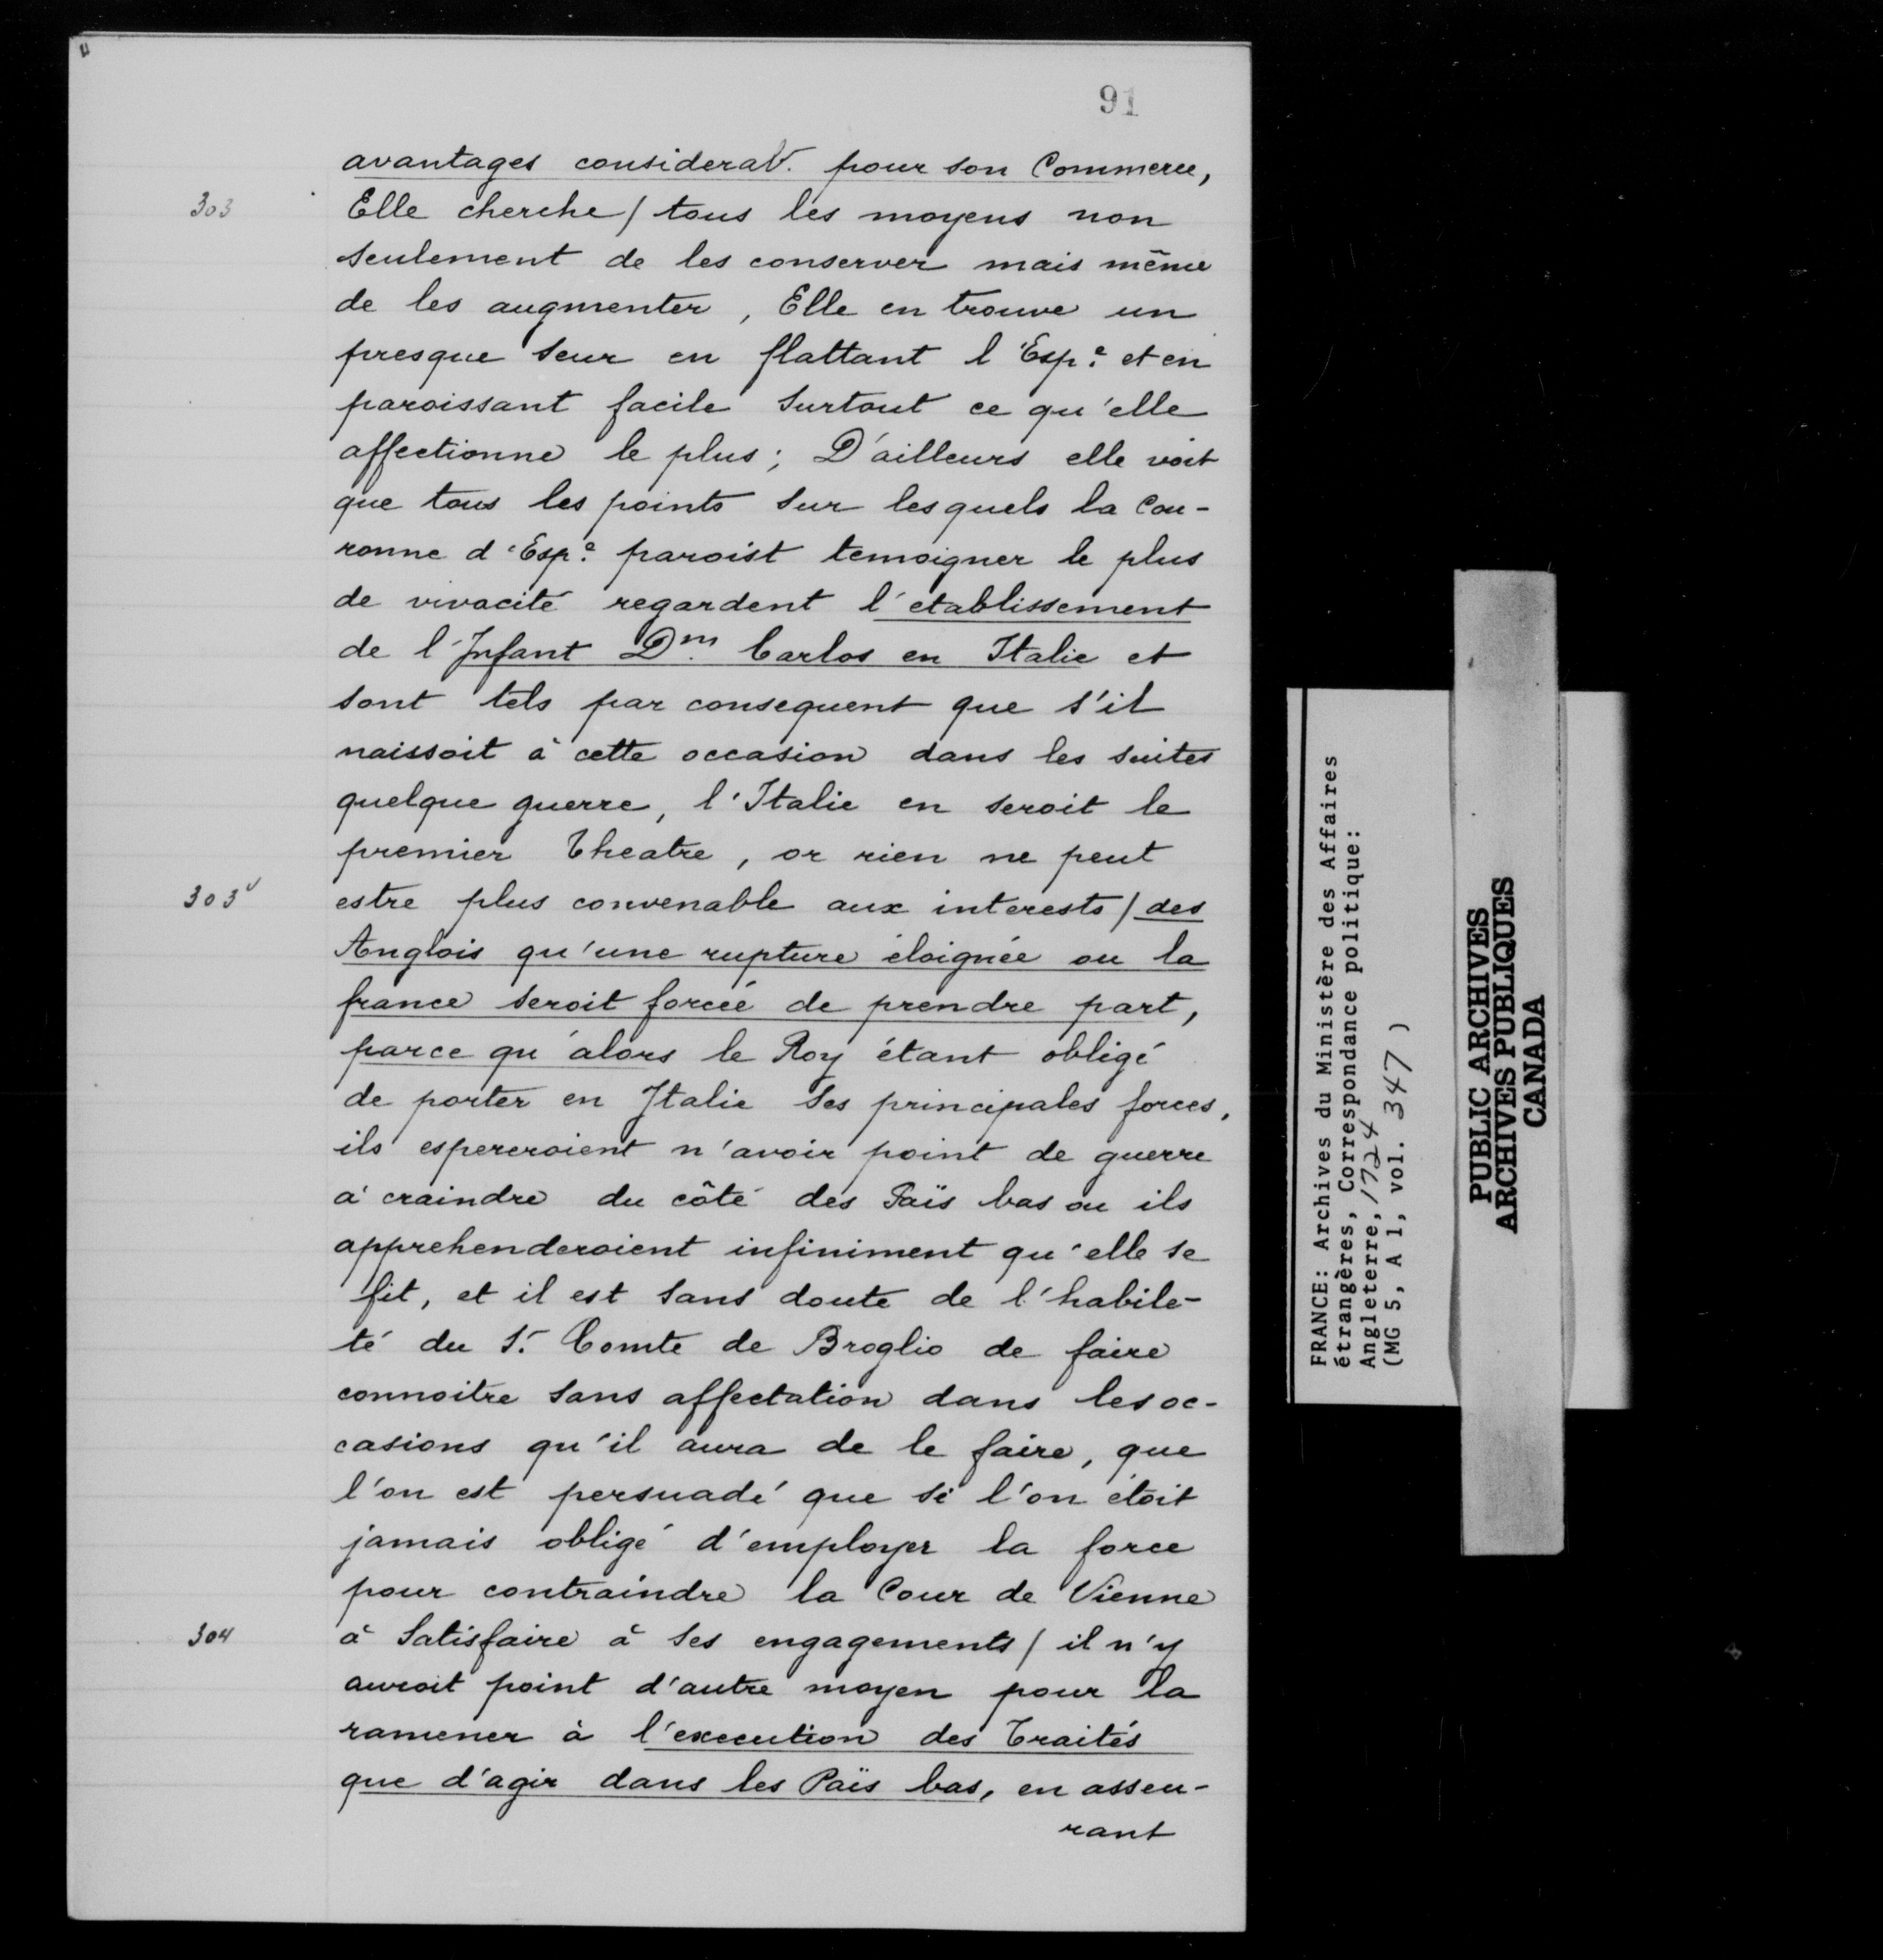 91
avantages considerab. pour son Commerce,
303 Elle cherche / tous les moyens non
seulement de les conserver mais même
de les augmenter, Elle en trouve un
presque seur en flattant l'Esp.e et en
paroissant facile surtout ce qu'elle
affectionne le plus; D'ailleurs elle voit
que tous les points sur lesquels la Cou-
ronne d'Esp.e paroist temoigner le plus
de vivacité regardent l'etablissement
de l'Infant Dm. Carlos en Italie et
sont tels par consequent que s'il
naissoit à cette occasion dans les suites
quelque guerre, l'Italie en seroit le
premier Theatre, or rien ne peut
303v estre plus convenable aux interests / des
Anglois qu'une rupture éloignée ou la
france seroit forcée de prendre part,
parce qu'alors le Roy étant obligé
de porter en Italie ses principales forces,
ils espereroient n'avoir point de guerre
à craindre du côté des Païs bas ou ils
apprehenderoient infiniment qu'elle se
fit, et il est sans doute de l'habile-
té du S.r Comte de Broglio de faire
connoitre sans affectation dans les oc-
casions qu'il aura de le faire, que
l'on est persuadé que si l'on étoit
jamais obligé d'employer la force
pour contraindre la Cour de Vienne
304 à Satisfaire à ses engagements / il n'y
auroit point d'autre moyen pour la
ramener à l'execution des Traités
que d'agir dans les Païs bas, en asseu-
rant
FRANCE: Archives du Ministère des Affaires
étrangères, Correspondance politique:
Angleterre, 1724
(MG 5, A 1, vol. 347)
PUBLIC ARCHIVES
ARCHIVES PUBLIQUES
CANADA